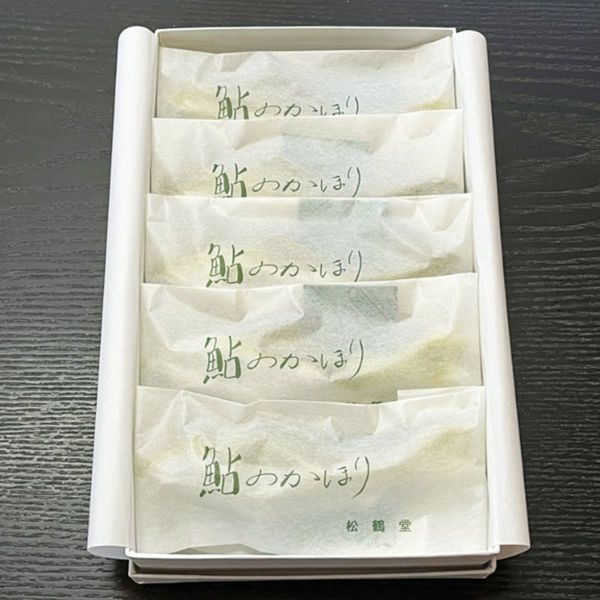 鮎のかほり
鮎のかほり
鮎のかほり
鮎のかほり
鮎のかほり
松鶴堂